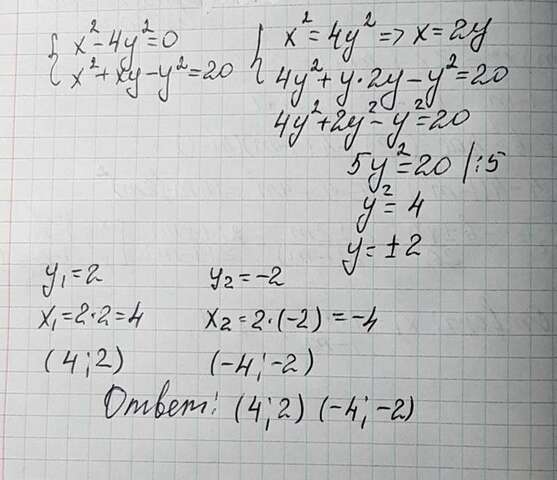 x²-4y²=0
x²+xy-y²=20
x²=4y² => x=2y
4y²+y·2y-y²=20
4y²+2y²-y²=20
5y²=20 |:5
y²=4
y=±2
y₁=2 y₂=-2
x₁=2·2=4 x₂=2·(-2)=-4
(4;2) (-4;-2)
Ответ: (4;2) (-4;-2)